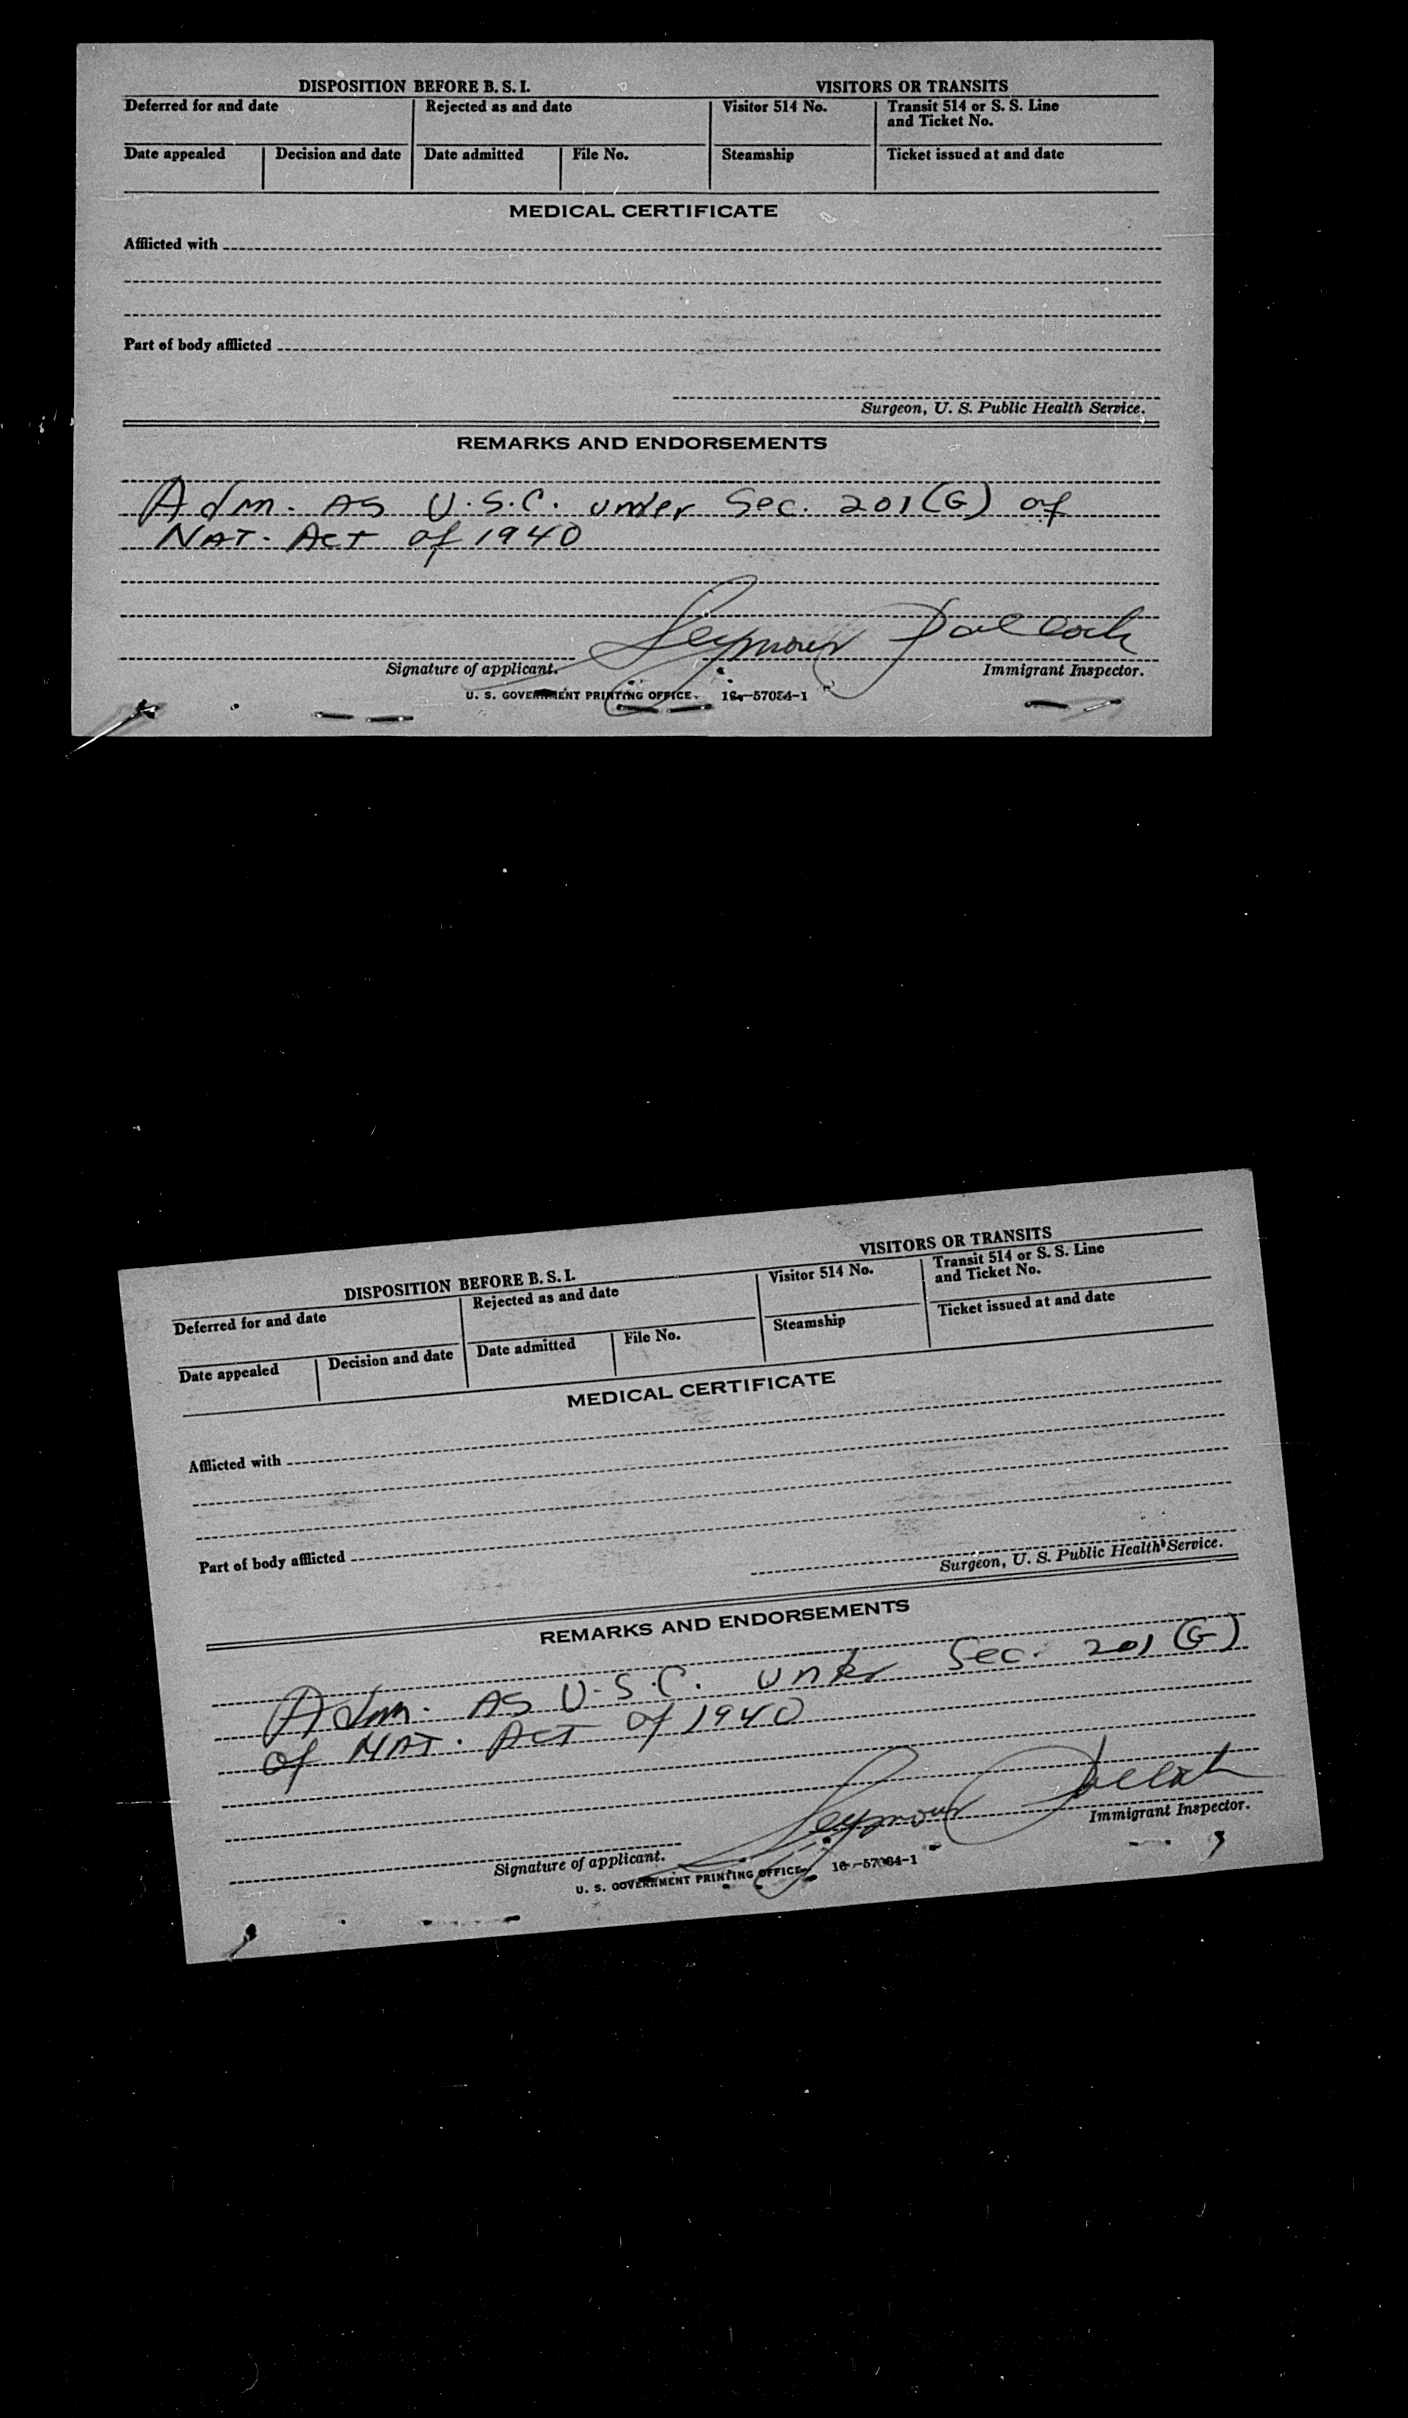 DISPOSITION BEFORE B. S. I. VISITORS OR TRANSITS
Deferred for and date Rejected as and date Visitor 514 No. Transit 514 or S. S. Line
and Ticket No.
Date appealed Decision and date Date admitted File No. Steamship Ticket issued at and date
MEDICAL CERTIFICATE
Afflicted with
Part of body afflicted
Surgeon, U. S. Public Health Service.
REMARKS AND ENDORSEMENTS
Adm. AS U.S.C. under Sec. 201(G) of
NAT. ACT of 1940
Seymour Pollock
Signature of applicant. Immigrant Inspector.
U. S. GOVERNMENT PRINTING OFFICE 16-57084-1
DISPOSITION BEFORE B. S. I. VISITORS OR TRANSITS
Deferred for and date Rejected as and date Visitor 514 No. Transit 514 or S. S. Line
and Ticket No.
Date appealed Decision and date Date admitted File No. Steamship Ticket issued at and date
MEDICAL CERTIFICATE
Afflicted with
Part of body afflicted
Surgeon, U. S. Public Health Service.
REMARKS AND ENDORSEMENTS
Adm. AS U.S.C. under Sec. 201(G)
of NAT. ACT of 1940
Seymour Pollock
Signature of applicant. Immigrant Inspector.
U. S. GOVERNMENT PRINTING OFFICE 16-57084-1